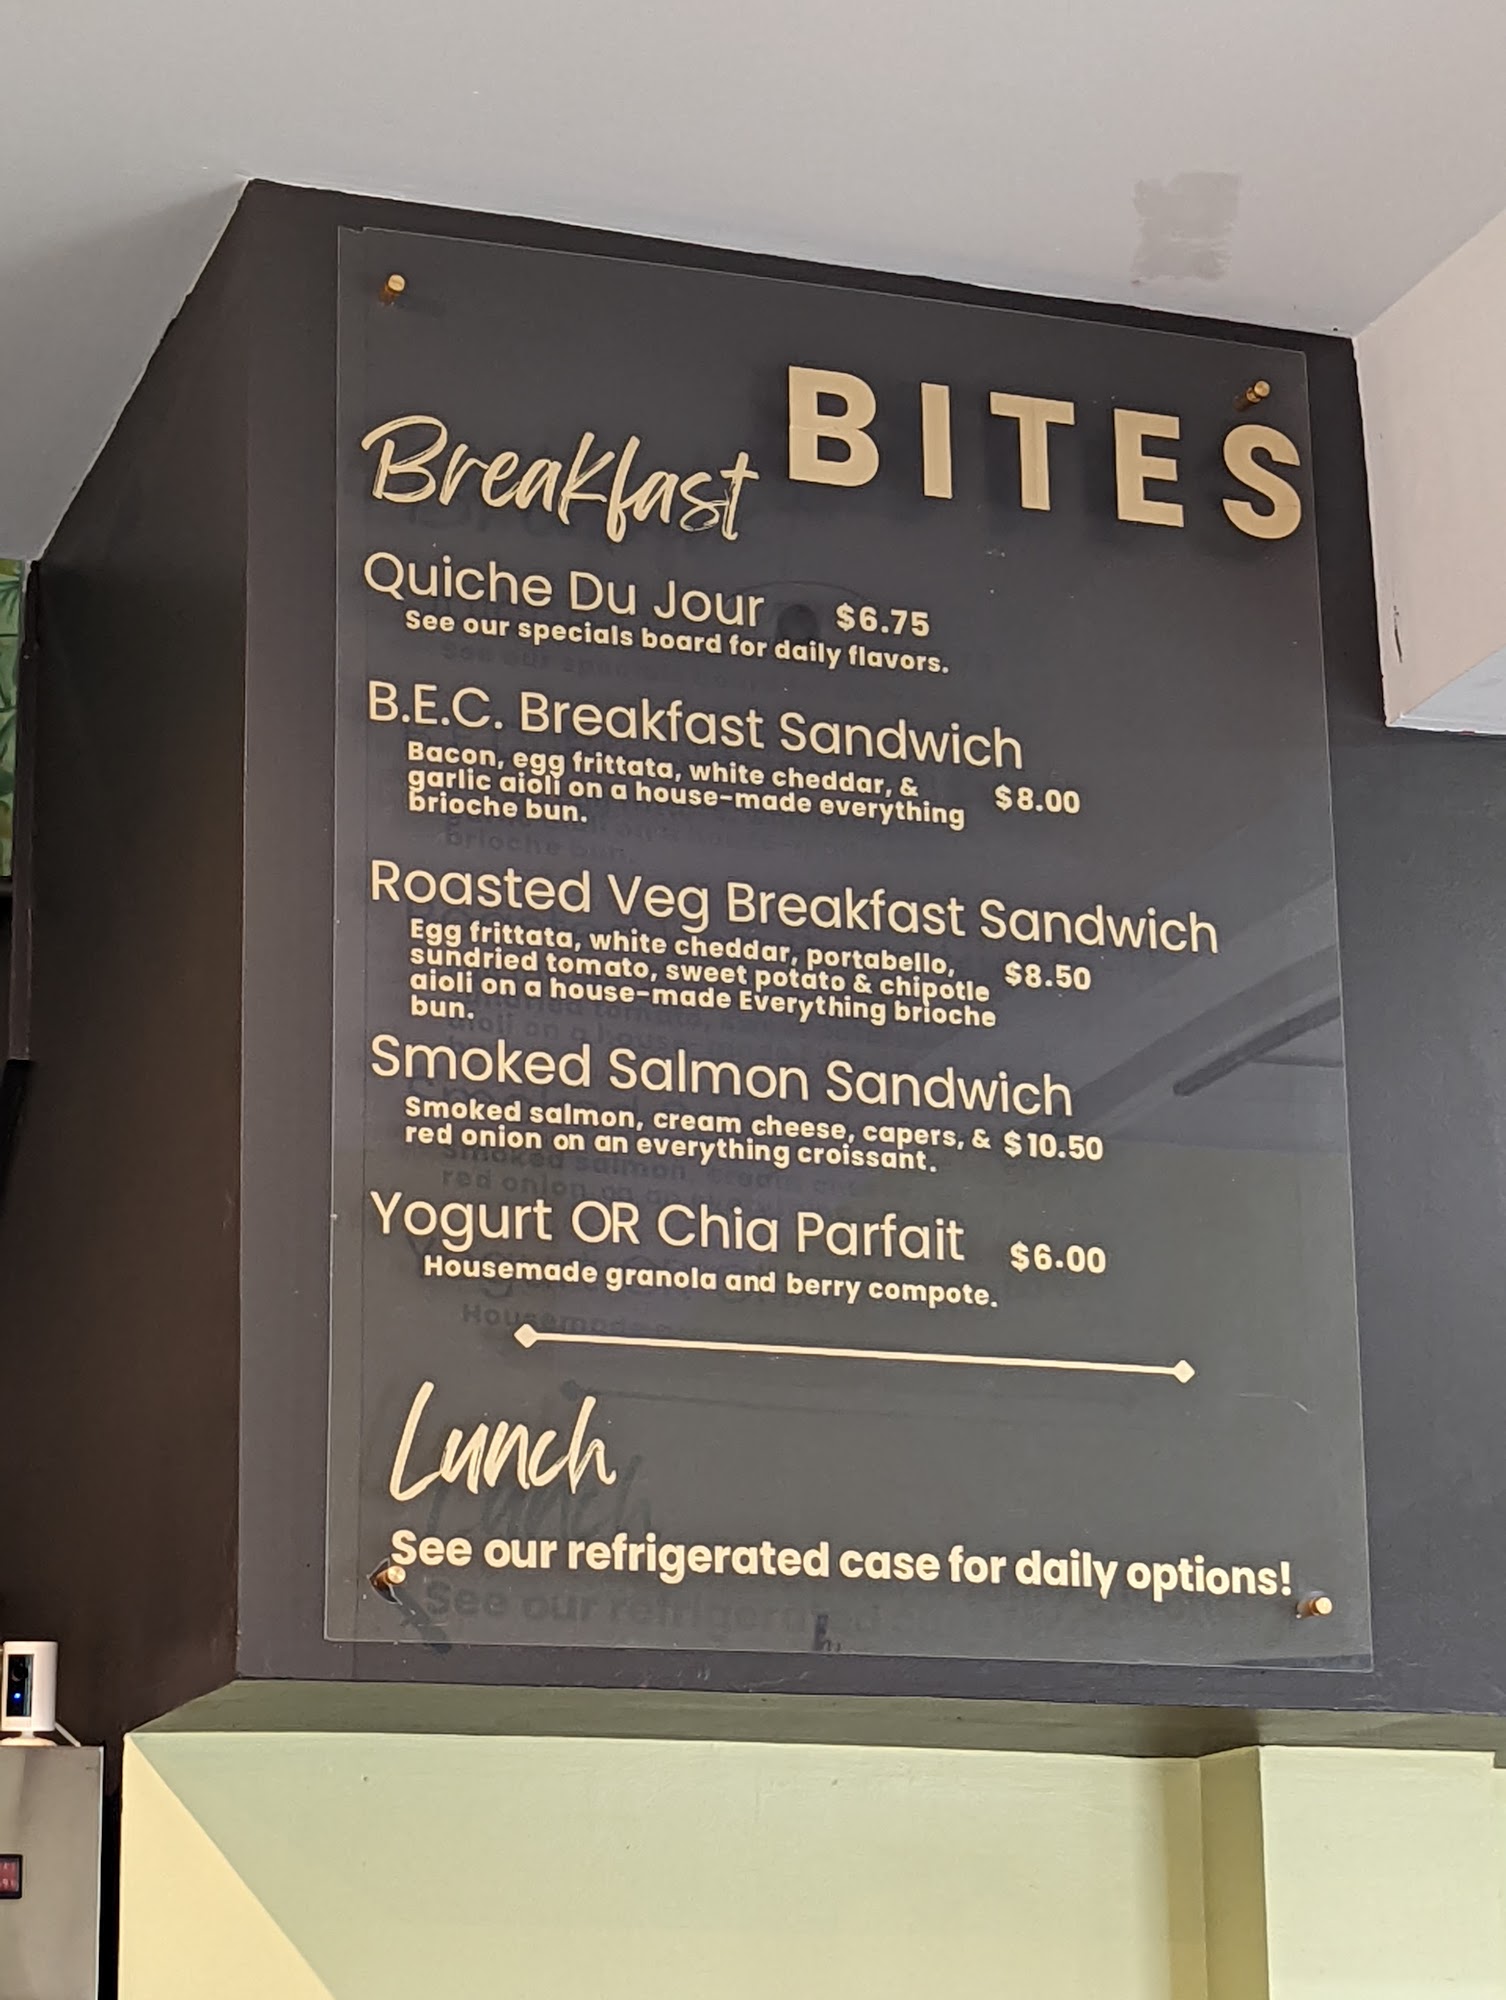 BITES
Breakfast
Quiche Du Jour $6.75
See our specials board for daily flavors.
B.E.C. Breakfast Sandwich
Bacon, egg frittata, white cheddar, &
garlic aioli on a house-made everything
brioche bun.
$8.00
Roasted Veg Breakfast Sandwich
Egg frittata, white cheddar, portabello,
sundried tomato, sweet potato & chipotle
aioli on a house-made Everything brioche
bun.
$8.50
Smoked Salmon Sandwich
Smoked salmon, cream cheese, capers, &
red onion on an everything croissant.
$10.50
Yogurt OR Chia Parfait $6.00
Housemade granola and berry compote.
Lunch
See our refrigerated case for daily options!